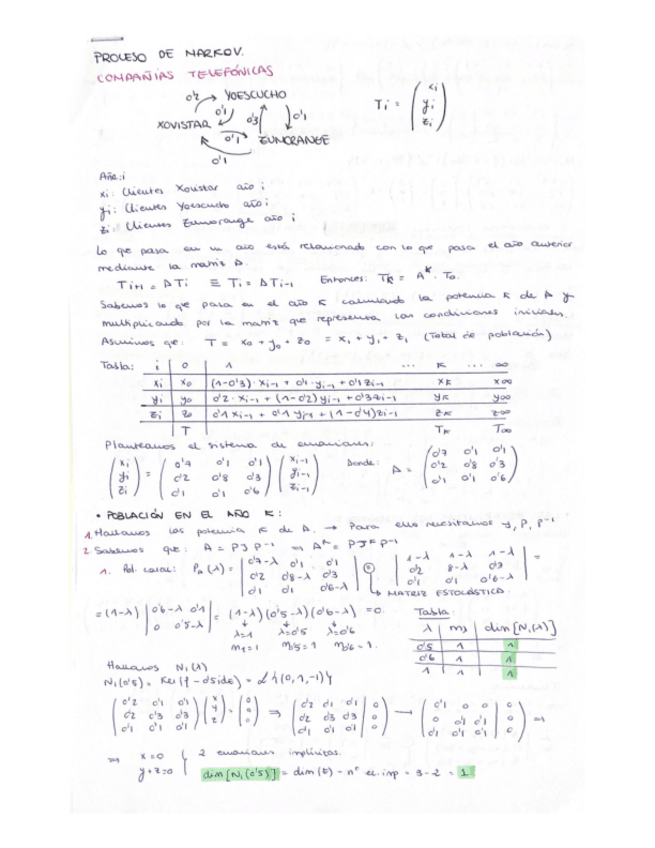 PROCESO DE MARKOV.
COMPAÑÍAS TELEFÓNICAS
0'2 YOESCUCHO
0'1 0'3 0'1
XOVISTAR
0'1 ZUMORANGE
0'1
Ti = (xi yi zi)
Año: i
xi: Clientes Xovistar año i
yi: Clientes Yoescucho año i
zi: Clientes Zumorange año i
Lo que pasa en un año está relacionado con lo que pasa el año anterior
mediante la matriz A.
Ti+1 = A Ti ≡ Ti = A Ti-1 Entonces: TK = A^K · T0.
Sabemos lo que pasa en el año K calculando la potencia K de A y
multiplicando por la matriz que representa las condiciones iniciales.
Asumimos que: T = x0 + y0 + z0 = x1 + y1 + z1 (Total de población)
Tabla: i 0 1 ... K ... ∞
xi x0 (1-0'3)·xi-1 + 0'1·yi-1 + 0'1zi-1 xK x∞
yi y0 0'2·xi-1 + (1-0'2)yi-1 + 0'3zi-1 yK y∞
zi z0 0'1xi-1 + 0'1yi-1 + (1-0'4)zi-1 zK z∞
T TK T∞
Planteamos el sistema de ecuaciones:
(xi yi zi) = (0'7 0'1 0'1 0'2 0'8 0'3 0'1 0'1 0'6) (xi-1 yi-1 zi-1) Donde: A = (0'7 0'1 0'1 0'2 0'8 0'3 0'1 0'1 0'6)
• POBLACIÓN EN EL AÑO K:
1. Hallamos las potencia K de A. → Para ello necesitamos J, P, P^-1
2. Sabemos que: A = PJP^-1 ⇒ A^K = PJ^K P^-1
1. Pol. carac: PA(λ) = |0'7-λ 0'1 0'1 0'2 0'8-λ 0'3 0'1 0'1 0'6-λ| = |1-λ 1-λ 1-λ 0'2 8-λ 0'3 0'1 0'1 0'6-λ| =
MATRIZ ESTOCÁSTICA.
= (1-λ) |0'6-λ 0'1 0 0'5-λ| = (1-λ)(0'5-λ)(0'6-λ) = 0.
λ=1 λ=0'5 λ=0'6
m1=1 m0'5=1 m0'6=1.
Tabla:
λ mλ dim[N1(λ)]
0'5 1 1
0'6 1 1
1 1 1
Hallamos N1(λ)
N1(0'5) = Ker(f - 0'5ide) = L{(0,1,-1)}
(0'2 0'1 0'1 0'2 0'3 0'3 0'1 0'1 0'1) (x y z) = (0 0 0) ⇒ (0'2 0'1 0'1 0'2 0'3 0'3 0'1 0'1 0'1 | 0 0 0) → (0'1 0 0 0 0'1 0'1 0'1 0'1 0'1 | 0 0 0) ⇒
⇒ x=0 y+z=0 } 2 ecuaciones implícitas.
dim[N1(0'5)] = dim(E) - nº ec. imp = 3-2 = 1